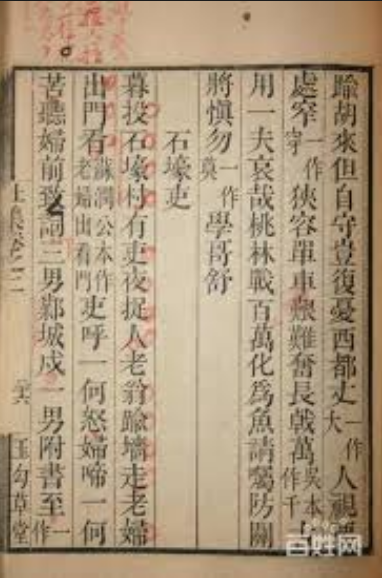 踰胡來但自守豈復憂西都丈一作大人視要
處窄一作穿狹容單車艱難奮長戟萬吳本作千古
用一夫哀哉桃林戰百萬化爲魚請囑防關
將慎勿一作莫學哥舒
石壕吏
暮投石壕村有吏夜捉人老翁踰墻走老婦
出門看蘇潤公本作老婦出看門吏呼一何怒婦啼一何
苦聽婦前致詞三男鄴城戍一男附書至一作
杜集卷二 玉勾草堂
百姓网